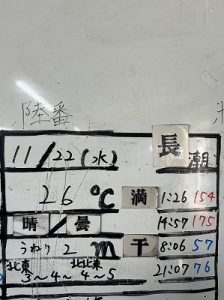 陸番
長潮
11/22(水)
26℃ 満 1:26 154
晴/曇 14:57 175
うねり2m 干 8:06 57
北東 北北東 21:07 76
3〜4 4〜5